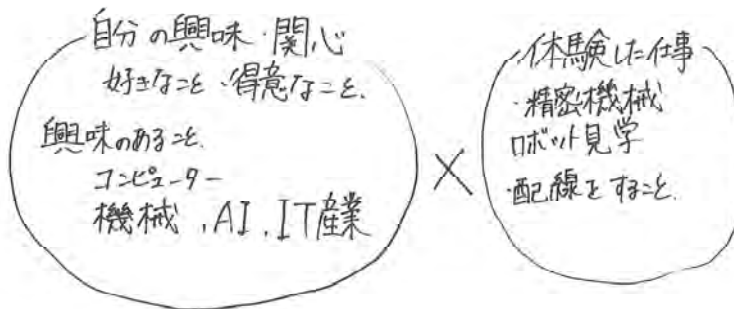 自分の興味・関心
好きなこと・得意なこと、
興味のあること、
コンピューター
機械、AI、IT産業
×
体験した仕事
・精密機械
ロボット見学
・配線をすること、